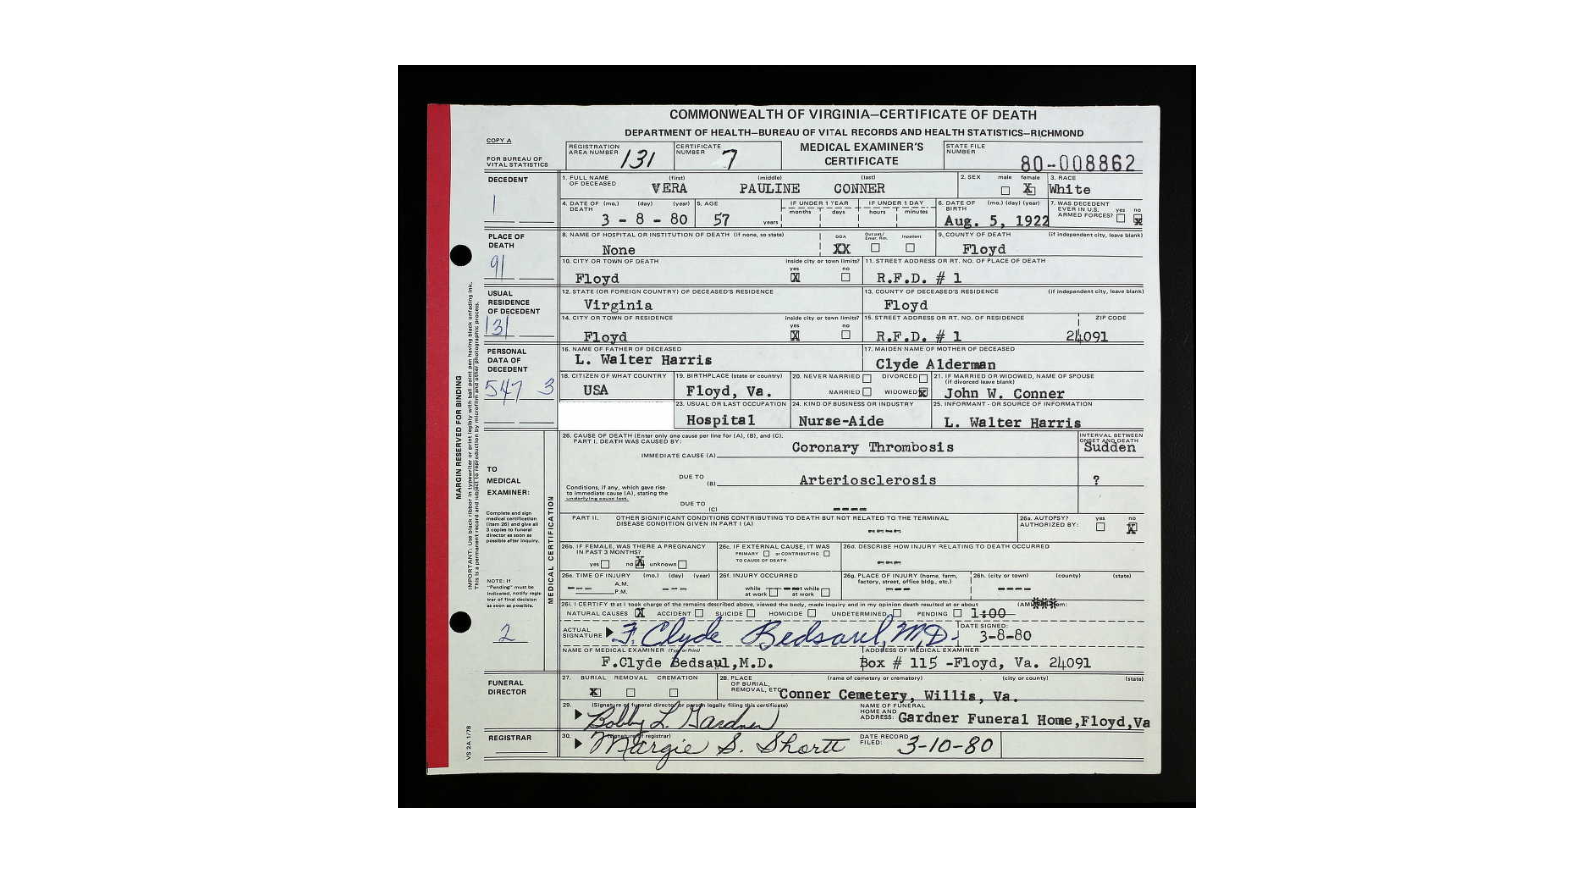 COMMONWEALTH OF VIRGINIA—CERTIFICATE OF DEATH
DEPARTMENT OF HEALTH—BUREAU OF VITAL RECORDS AND HEALTH STATISTICS—RICHMOND
COPY A
FOR BUREAU OF VITAL STATISTICS
REGISTRATION AREA NUMBER 131 CERTIFICATE NUMBER 7 MEDICAL EXAMINER'S CERTIFICATE STATE FILE NUMBER 80-008862
DECEDENT
1
1. FULL NAME OF DECEASED (first) (middle) (last) 2. SEX male female 3. RACE
VERA PAULINE CONNER X White
4. DATE OF DEATH (mo.) (day) (year) 5. AGE IF UNDER 1 YEAR IF UNDER 1 DAY 6. DATE OF BIRTH (mo.) (day) (year) 7. WAS DECEDENT EVER IN U.S. ARMED FORCES? yes no
months days hours minutes
3 - 8 - 80 57 years Aug. 5, 1922 X
PLACE OF DEATH
91
8. NAME OF HOSPITAL OR INSTITUTION OF DEATH (if none, so state) DOA Inpatient 9. COUNTY OF DEATH (if independent city, leave blank)
None XX Floyd
10. CITY OR TOWN OF DEATH inside city or town limits? yes no 11. STREET ADDRESS OR RT. NO. OF PLACE OF DEATH
Floyd X R.F.D. # 1
USUAL RESIDENCE OF DECEDENT
131
12. STATE (OR FOREIGN COUNTRY) OF DECEASED'S RESIDENCE 13. COUNTY OF DECEASED'S RESIDENCE (if independent city, leave blank)
Virginia Floyd
14. CITY OR TOWN OF RESIDENCE inside city or town limits? yes no 15. STREET ADDRESS OR RT. NO. OF RESIDENCE ZIP CODE
Floyd X R.F.D. # 1 24091
PERSONAL DATA OF DECEDENT
547 3
16. NAME OF FATHER OF DECEASED 17. MAIDEN NAME OF MOTHER OF DECEASED
L. Walter Harris Clyde Alderman
18. CITIZEN OF WHAT COUNTRY 19. BIRTHPLACE (state or country) 20. NEVER MARRIED DIVORCED 21. IF MARRIED OR WIDOWED, NAME OF SPOUSE (if divorced leave blank)
USA Floyd, Va. MARRIED WIDOWED X John W. Conner
23. USUAL OR LAST OCCUPATION 24. KIND OF BUSINESS OR INDUSTRY 25. INFORMANT - OR SOURCE OF INFORMATION
Hospital Nurse-Aide L. Walter Harris
MARGIN RESERVED FOR BINDING
IMPORTANT: Use black ribbon in typewriter or print legibly with ball point pen having black unfading ink.
MEDICAL CERTIFICATION
TO MEDICAL EXAMINER:
Complete and sign medical certification (item 26) and give all 3 copies to funeral director as soon as possible after inquiry.
NOTE: If "Pending" must be indicated, notify registrar of final decision as soon as possible.
2
26. CAUSE OF DEATH (Enter only one cause per line for (A), (B), and (C).
PART I. DEATH WAS CAUSED BY: INTERVAL BETWEEN ONSET AND DEATH
IMMEDIATE CAUSE (A) Coronary Thrombosis Sudden
DUE TO (B) Arteriosclerosis ?
Conditions, if any, which gave rise to immediate cause (A), stating the underlying cause last.
DUE TO (C) ----
PART II. OTHER SIGNIFICANT CONDITIONS CONTRIBUTING TO DEATH BUT NOT RELATED TO THE TERMINAL DISEASE CONDITION GIVEN IN PART I (A) ---- 26a. AUTOPSY? AUTHORIZED BY: yes no X
26b. IF FEMALE, WAS THERE A PREGNANCY IN PAST 3 MONTHS? yes no X unknown 26c. IF EXTERNAL CAUSE, IT WAS PRIMARY or CONTRIBUTING TO CAUSE OF DEATH 26d. DESCRIBE HOW INJURY RELATING TO DEATH OCCURRED ---
26e. TIME OF INJURY (mo.) (day) (year) A.M. P.M. --- 26f. INJURY OCCURRED while at work not while at work 26g. PLACE OF INJURY (home, farm, factory, street, office bldg., etc.) --- 26h. (city or town) (county) (state) ----
26i. I CERTIFY that I took charge of the remains described above, viewed the body, made inquiry and in my opinion death resulted at or about (AM
NATURAL CAUSES X ACCIDENT SUICIDE HOMICIDE UNDETERMINED PENDING 1:00
ACTUAL SIGNATURE F. Clyde Bedsaul, M.D. DATE SIGNED: 3-8-80
NAME OF MEDICAL EXAMINER (Type or Print) ADDRESS OF MEDICAL EXAMINER
F.Clyde Bedsaul,M.D. Box # 115 -Floyd, Va. 24091
FUNERAL DIRECTOR
27. BURIAL REMOVAL CREMATION 28. PLACE OF BURIAL, REMOVAL, ETC. (name of cemetery or crematory) (city or county) (state)
X Conner Cemetery, Willis, Va.
29. (Signature of funeral director or person legally filing this certificate) NAME OF FUNERAL HOME AND ADDRESS:
Bobby L. Gardner Gardner Funeral Home,Floyd,Va
REGISTRAR
30. (signature of registrar) DATE RECORD FILED:
Margie S. Shortt 3-10-80
VS 2A 1/78